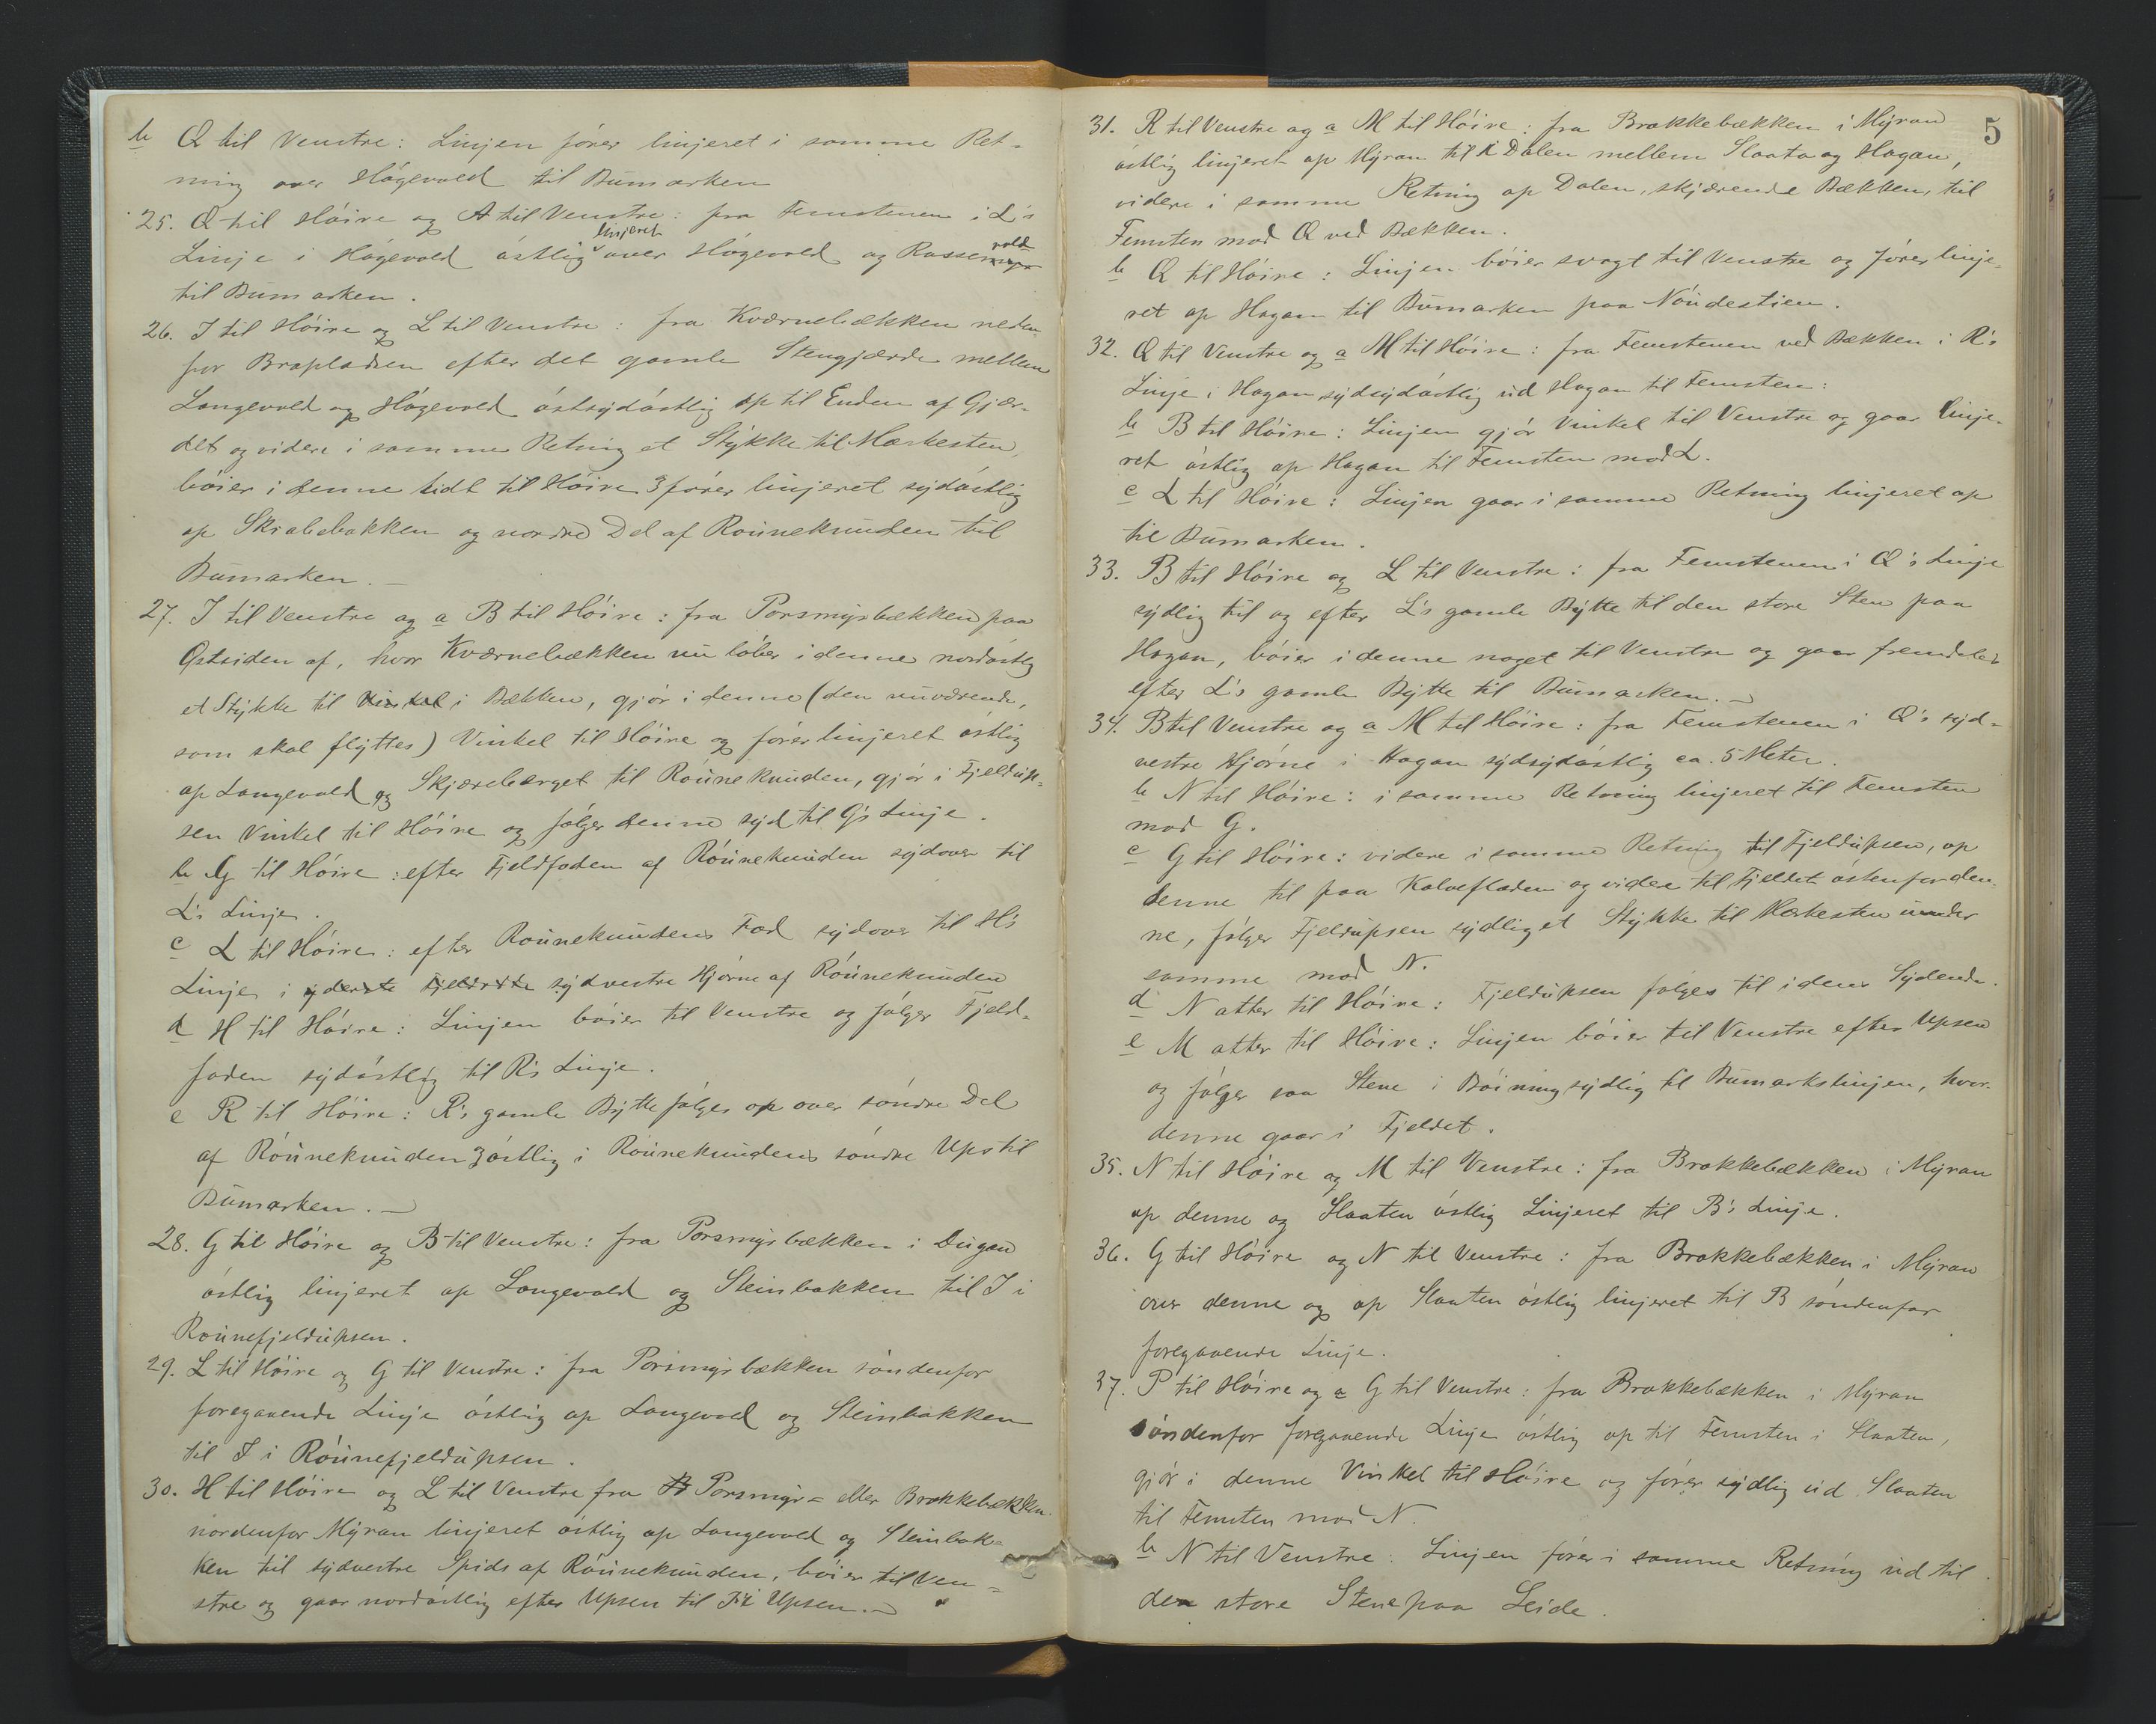 b Q til Venstre: Linjen fører linjeret i samme Ret-
ning over Høgevold til Bumarken
25. Q til Høire og A til Venstre: fra Femstenen i L's
Linje i Høgevold østlig linjeret over Høgevold og Rossevold
til Bumarken.
26. I til Høire og L til Venstre: fra Kværnebækken neden-
for Brapladsen efter det gamle Stengjærde mellem
Langevold og Høgevold østsydøstlig op til Enden af Gjær-
det og videre i samme Retning et Stykke til Mærkesten,
bøier i denne lidt til Høire & fører linjeret sydøstlig
op Skrabebakken og nordre Del af Rounekunden til
Bumarken. —
27. I til Venstre og a B til Høire: fra Porsmyrbækken paa
Østsiden af, hvor Kværnebækken nu løber i denne nordøstlig
et Stykke til Vinkel i Bækken, gjør i denne (den nuværende,
som skal flyttes) Vinkel til Høire og fører linjeret østlig
op Langevold og Skjærebærget til Rounekunden, gjør i Fjeldup-
sen Vinkel til Høire og følger denne syd til G's Linje.
b G til Høire: efter Fjeldfoden af Rounekunden sydover til
L's Linje.
c L til Høire: efter Rounekundens Fod sydover til H's
Linje i yderste Fjeldside sydvestre Hjørne af Rounekunden
d H til Høire: Linjen bøier til Venstre og følger Fjeld-
foden sydøstlig til R's Linje.
e R til Høire: R's gamle Bytte følges op over søndre Del
af Rounekunden & østlig i Rounekundens søndre Ups til
Bumarken. —
28. G til Høire og B til Venstre: fra Porsmyrbækken i Dugan
østlig linjeret op Langevold og Steinbakken til I i
Rounefjeldupsen.
29. L til Høire og G til Venstre: fra Porsmyrbækken søndenfor
foregaaende Linje østlig op Langevold og Steinbakken
til I i Rounefjeldupsen.
30. H til Høire og L til Venstre fra Porsmyr- eller Brokkebækken
nordenfor Myran linjeret østlig op Langevold og Steinbak-
ken til sydvestre Spids af Rounekunden, bøier til Ven-
stre og gaar nordøstlig efter Upsen til I i Upsen. —
5
31. R til Venstre og a M til Høire: fra Brokkebækken i Myran
østlig linjeret op Myran til Dalen mellem Slaata og Hagan,
videre i samme Retning op Dalen, skjærende Bækken, til
Femsten mod Q ved Bækken.
b Q til Høire: Linjen bøier svagt til Venstre og fører linje-
ret op Hagan til Bumarken paa Nøudestien.
32. Q til Venstre og a M til Høire: fra Femstenen ved Bækken i R's
Linje i Hagan sydsydøstlig ud Hagan til Femsten:
b B til Høire: Linjen gjør Vinkel til Venstre og gaar linje-
ret østlig op Hagan til Femsten mod L.
c L til Høire: Linjen gaar i samme Retning linjeret op
til Bumarken.
33. B til Høire og L til Venstre: fra Femstenen i Q's Linje
sydlig til og efter L's gamle Bytte til den store Sten paa
Hagan, bøier i denne noget til Venstre og gaar fremdeles
efter L's gamle Bytte til Bumarken. —
34. B til Venstre og a M til Høire: fra Femstenen i Q's syd-
vestre Hjørne i Hagan sydsydøstlig ca. 5 Meter.
b N til Høire: i samme Retning linjeret til Femsten
mod G.
c G til Høire: videre i samme Retning til Fjeldupsen, op
denne til paa Kalvefladen og videre til Fjeldet østenfor den-
ne, følger Fjeldupsen sydlig et Stykke til Mærkesten under
samme mod N.
d N atter til Høire: Fjeldupsen følges til i dens Sydende.
e M atter til Høire: Linjen bøier til Venstre efter Upsen
og følger saa Stene i Bøining sydlig til Bumarkslinjen, hvor
denne gaar i Fjeldet.
35. N til Høire og M til Venstre: fra Brokkebækken i Myran
op denne og Slaaten østlig Linjeret til B's Linje.
36. G til Høire og N til Venstre: fra Brokkebækken i Myran
over denne og op Slaaten østlig linjeret til B søndenfor
foregaaende Linje.
37. P til Høire og a G til Venstre: fra Brokkebækken i Myran
søndenfor foregaaende Linje østlig op til Femsten i Slaaten,
gjør i denne Vinkel til Høire og fører sydlig ud Slaaten
til Femsten mod N.
b N til Venstre: Linjen fører i samme Retning ud til
den store Stene paa Leide.